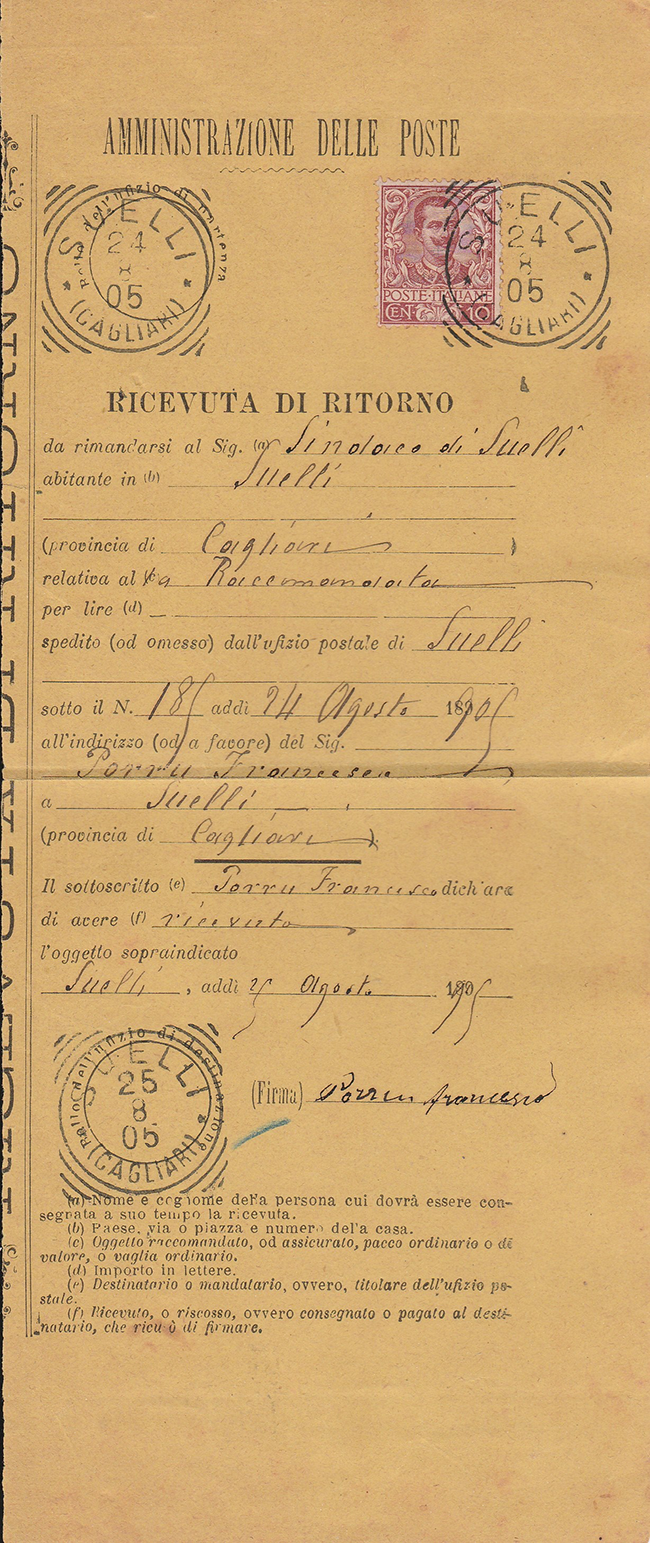 AMMINISTRAZIONE DELLE POSTE
Bollo dell'ufizio di partenza
SUELLI
24
8
05
(CAGLIARI)
POSTE·ITALIANE
CEN 10
SUELLI
24
8
05
(CAGLIARI)
RICEVUTA DI RITORNO
da rimandarsi al Sig. (a) Sindaco di Suelli
abitante in (b) Suelli
(provincia di Cagliari )
relativa al Raccomandata
per lire (d)
spedito (od omesso) dall'ufizio postale di Suelli
sotto il N. 185 addì 24 Agosto 1905
all'indirizzo (od a favore) del Sig.
Porru Francesco
a Suelli
(provincia di Cagliari ).
Il sottoscritto (e) Porru Francesco dichiara
di avere (f) ricevuto
l'oggetto sopraindicato
Suelli , addì 25 Agosto 1905
Bollo dell'ufizio di destinazione
SUELLI
25
8
05
(CAGLIARI)
(Firma) Porru francesco
(a) Nome e cognome della persona cui dovrà essere con-
segnata a suo tempo la ricevuta.
(b) Paese, via o piazza e numero della casa.
(c) Oggetto raccomandato, od assicurato, pacco ordinario o di
valore, o vaglia ordinario.
(d) Importo in lettere.
(e) Destinatario o mandatario, ovvero, titolare dell'ufizio po-
stale.
(f) Ricevuto, o riscosso, ovvero consegnato o pagato al desti-
natario, che ricusò di firmare.